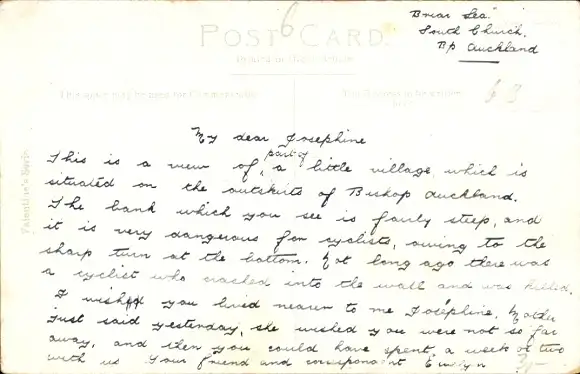 6
Briar Lea.
South Church.
Bp Auckland
POST CARD.
This space may be used for Correspondence
The Address to be written here
63
Valentine's Series
My dear Josephine
This is a view of part of a little village which is
situated on the outskirts of Bishop Auckland.
The bank which you see is fairly steep, and
it is very dangerous for cyclists, owing to the
sharp turn at the bottom. Not long ago there was
a cyclist who crached into the wall and was killed.
I wished you lived nearer to me Joséphine. Mother
just said yesterday, she wished you were not so far
away, and then you could have spent a week or two
with us Your friend and correspondent Evelyn